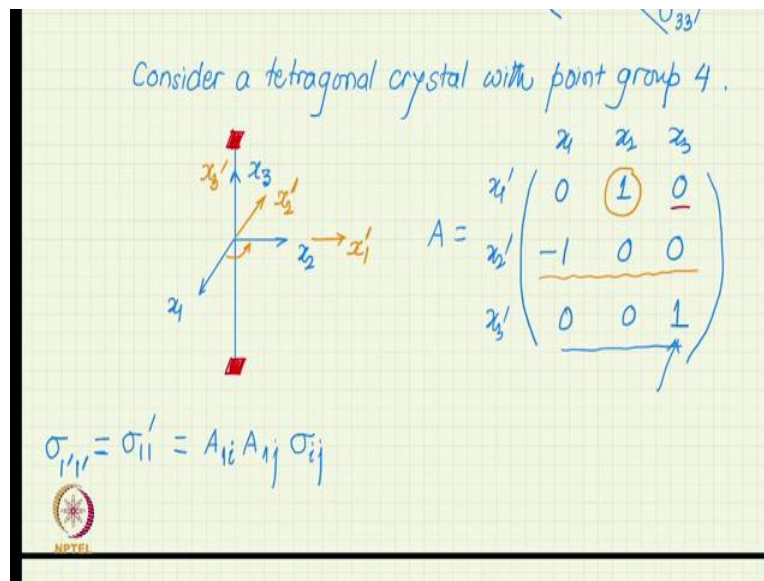 σ33
Consider a tetragonal crystal with point group 4.
x1 x2 x3
x3' x3 x2' x1' 0 1 0
A = x2' -1 0 0
x2 x1'
x1 x3' 0 0 1
σ1'1' = σ11' = A1i A1j σij
NPTEL